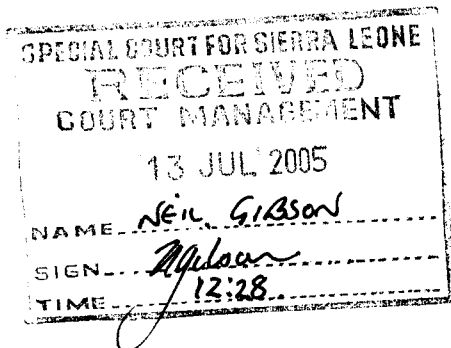 SPECIAL COURT FOR SIERRA LEONE
RECEIVED
COURT MANAGEMENT
13 JUL 2005
NAME NEIL GIBSON
SIGN NGibson
TIME 12:28